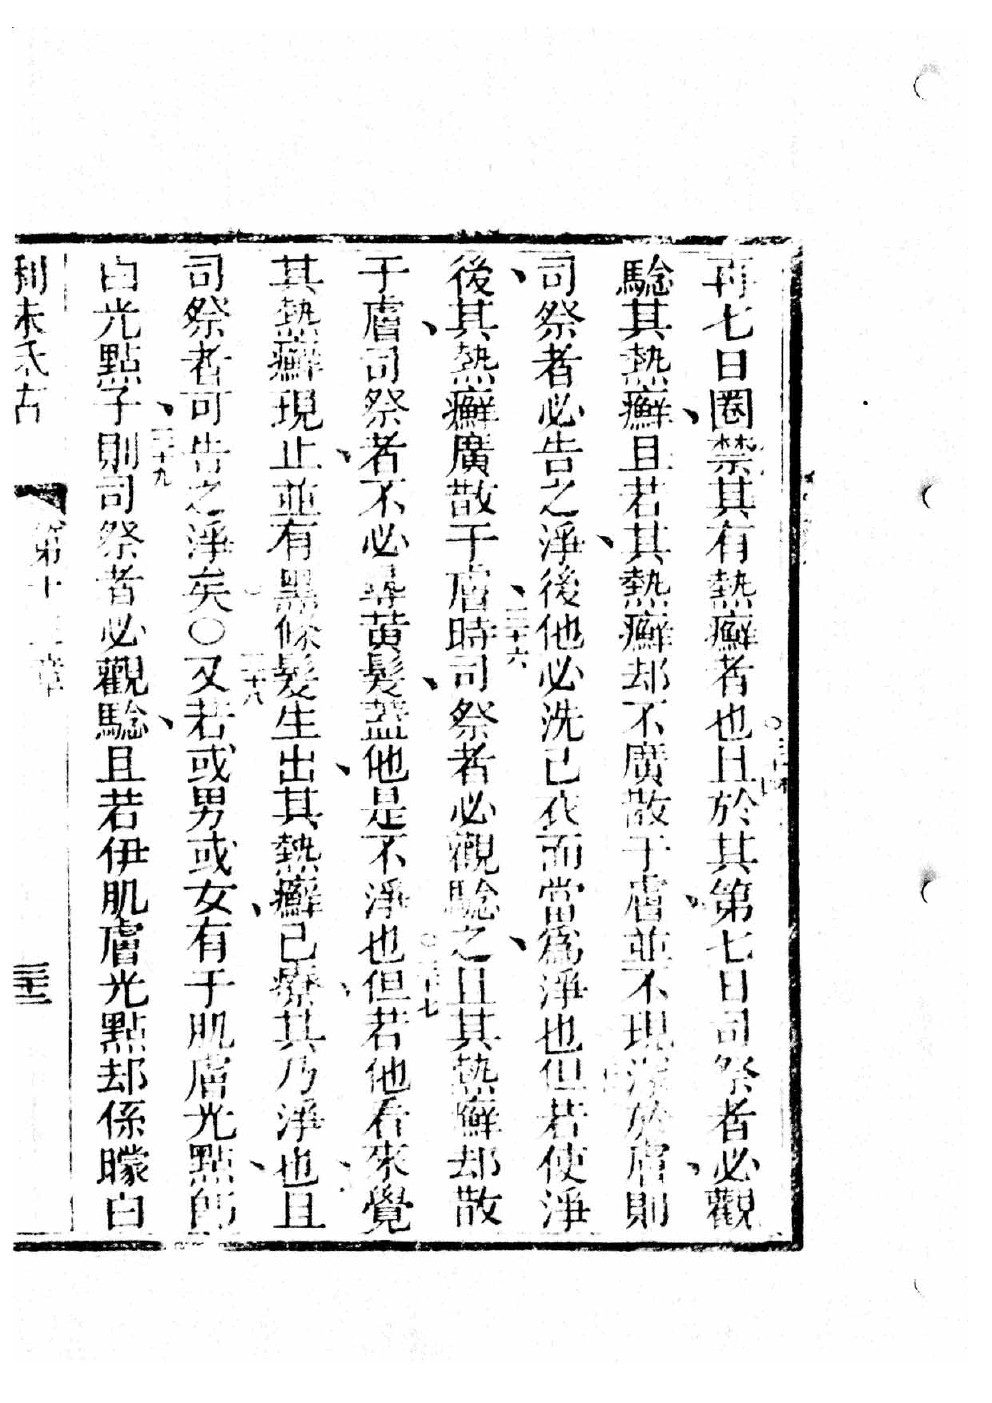 再七日圈禁其有熱癬者也且於其第七日司祭者必觀
騐其熱癬且若其熱癬却不廣散于膚並不現深於膚則
司祭者必告之淨後他必洗己衣而當為淨也但若使淨
後其熱癬廣散于膚時司祭者必觀騐之且其熱癬却散
三十六
于膚司祭者不必尋黃髮蓋他是不淨也但若他看來覺
三十七
其熱癬現止並有黑條髮生出其熱癬已療其乃淨也且
司祭者可告之淨矣〇又若或男或女有于肌膚光點即
三十八
白光點子則司祭者必觀騐且若伊肌膚光點却係矇白
三十九
利未氏古
第十三章
三十三